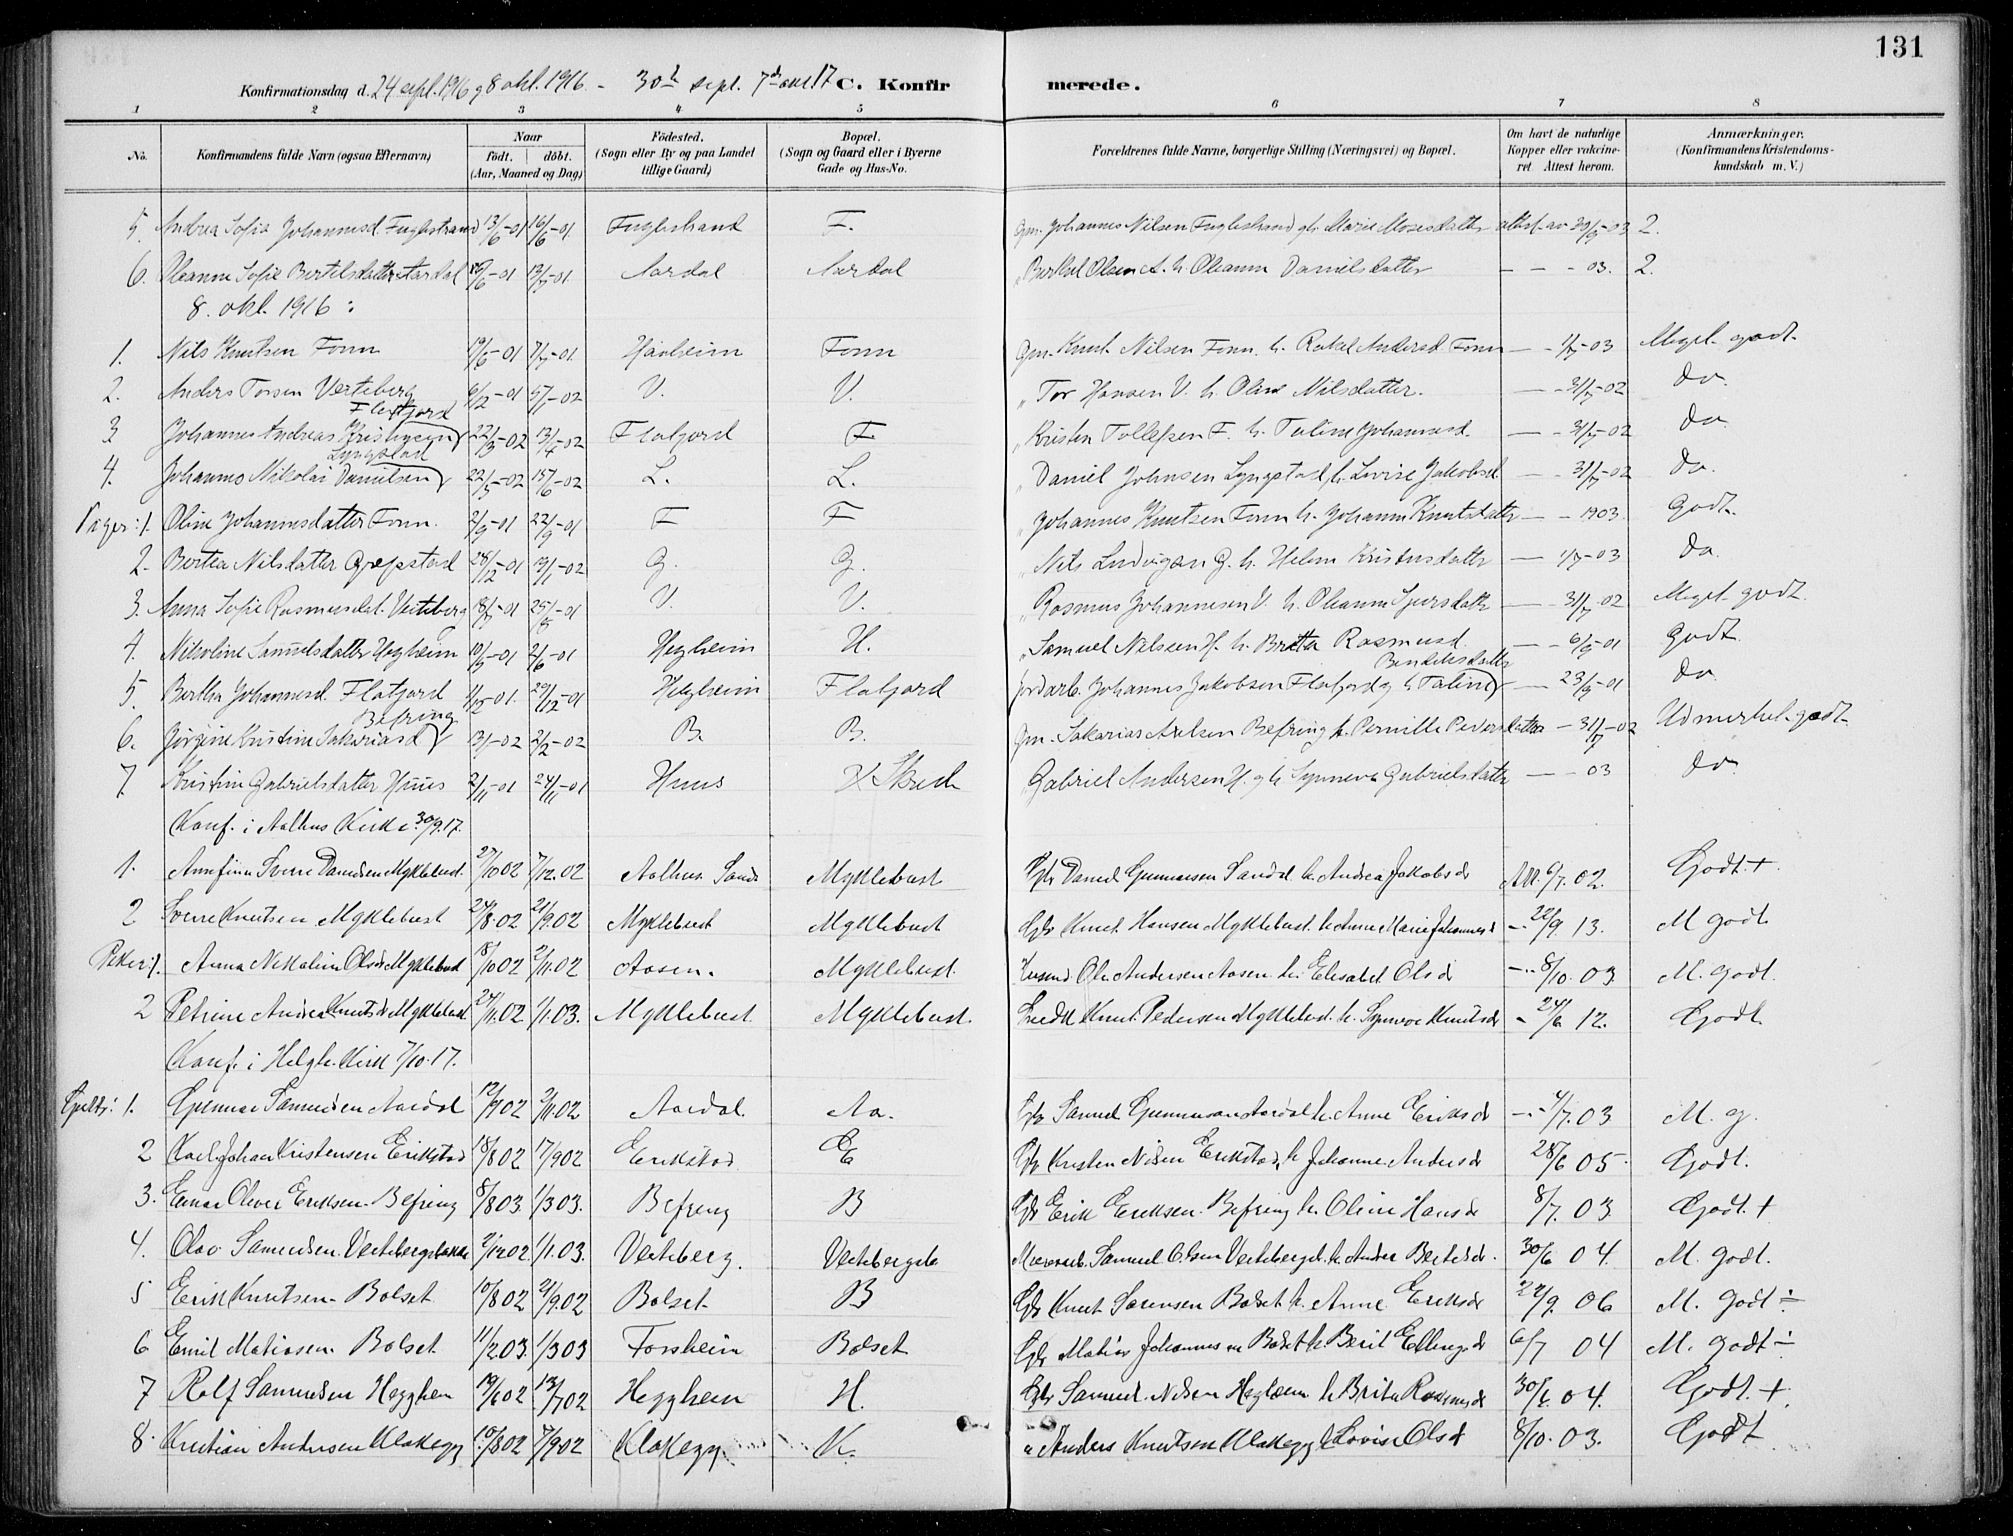 131
Konfirmationsdag d. 24 sept. 1916 og 8 okt. 1916. - 30te sept. 7de okt 17 C. Konfirmerede.
1 2 3 4 5 6 7 8
No. Konfirmandens fulde Navn (ogsaa Efternavn) Naar født. døbt. (Aar, Maaned og Dag) Fødested. (Sogn eller By og paa Landet tillige Gaard) Bopæl. (Sogn og Gaard eller i Byerne Gade og Hus-No. Forældrenes fulde Navne, borgerlige Stilling (Næringsvei) og Bopæl. Om havt de naturlige Kopper eller vakcineret. Attest herom. Anmærkninger. (Konfirmandens Kristendomskundskab m. V.)
5. Andrea Sofie Johannesd. Fuglestrand 13/6-01 16/6-01 Fuglestrand F. Gm. Johannes Nilsen Fuglestrand og h. Marie Mosesdatter attest av 30/9-03 2.
6. Oleanna Sofie Bertelsdatter Aardal 10/6-01 13/7-01 Aardal Aardal " Bertel Olsen A. h. Oleanna Danielsdatter - - - 03. 2.
8. okt. 1916 :
1. Nils Knutsen Fonn 19/5-01 7/7-01 Hægheim Fonn Gm. Knut Nilsen Fonn h. Rakel Andersd. Fonn - - 1/7-03 Meget godt.
2. Anders Torsen Verteberg 6/12-01 5/1-02 V. V. " Tor Hansen V. h. Oline Nilsdatter. - - 31/7-02 do.
3 Johannes Andreas Kristensen Flatjord 22/3-02 13/4-02 Flatjord F " Kristen Tollefsen F. h. Taline Johannesd. - - 31/7-02 do
4. Johannes Nikolai Danielsen Lyngstad 22/5-02 15/6-02 L. L. " Daniel Johnsen Lyngstad h. Lovise Jakobsd. - - 31/7-02 do.
Piger: 1. Oline Johannesdatter Fonn. 2/9-01 22/9-01 F F " Johannes Knutsen Fonn h. Johanne Knutsdatter - - 1903 Godt.
2. Bertea Nilsdatter Grepstad 28/12-01 19/1-02 G. G. " Nils Ludvigsen G. h. Helene Kristensdatter - 1/7-03 do.
3. Anna Sofie Rasmusdat. Verteberg 18/7-01 25/8-01 V. V. " Rasmus Johannesen V. h. Oleanna Sjursdatter - - 31/7-02 Meget godt.
4. Nikoline Samuelsdatter Hegheim 10/5-01 2/6-01 Hegheim H. " Samuel Nilsen H. h. Britta Rasmusd. - - 6/9-01 godt.
5. Bertha Johannesd. Flatjord 1/12-01. 29/12-01 Helgheim Flatjord Jordarb. Johannes Jakobsen Flatjord og h. Taline Bendiksdatter - 23/9-01 do
6. Jørgine Kristine Sakariasd. Befring 13/1-02 2/2-02 B. B. Gm. Sakarias Axelsen Befring h. Pernille Pedersdatter - 31/7-02 Udmerket godt.
7 Kristine Gabrielsdatter Huus 2/11-01 24/11-01 Huus Gabriel Andersen H. og h. Synneva Gabrielsdatter - - 03 do.
Konf. i Aalhus Kirke 30/9.17.
1. Sverre Danielsen Myklebust. 27/10 02 7/12.02 Aalhus Sandal Myklebust Gbr Daniel Gunnarsen Sandal h. Andrea Jakobsdr Att. 6/7. 02. Godt +
2 Sverre Knutsen Myklebust 24/8.02 21/9.02 Myklebust Myklebust Gbr Knut Hansen Myklebust h. Anne Marie Johannesd - 22/9. 13. M godt.
Piker: 1. Anna Nikoline Olsdr Myklebust 18/10 02 2/11.02 Aasen. Myklebust. Husmd Ole Andersen Aasen h. Elisabet Olsdr - 8/10. 03 M. godt.
2 Petrine Andrea Knutsdr Myklebust. 24/11.02 1/1.03. Myklebust. Myklebust. Knut Pedersen Myklebust. h. Synneve Knutsdr - 24/6 12. Godt
Konf. i Helgh. Kirke 7/10.17.
Gutter: 1. Gunnar Samuelsen Aardal 12/9 02 2/11.02 Aardal Aa. Gbr Samuel Gunnarsen Aardal h. Anne Eriksdr - 4/7. 03 M. g.
2 Karl Johan Kristensen Erikstad 18/8 02 17/9 02 Erikstad E Gbr Kristen Nilsen Erikstad h Johanne Andersdr 28/6 05. Godt.
3. Einar Oliver Eriksen Befring 8/8 03 1/3 03. Befring B Gbr Erik Eriksen Befring h. Oline Hansdr 8/7. 03 Godt. +
4. Olav Samuelsen Vertebergsbakke 2/12 02 1/1.03. Verteberg. Vertebergsb Samuel Olsen Vertebergsb. h. Andrea Bertelsdr. 30/6 04. M. godt.
5 Erik Knutsen Bolset 10/8 02 21/9.02 Bolset B Gbr Knut Sørensen Bolset h. Anne Eriksdr 22/9. 06 M. godt ÷
6 Emil Matiasen Bolset 11/2 03. 1/3 03 Forsheim Bolset Gbr Matias Johannesen Bolset h. Berit Ellingsdr 6/7 04 M. godt ÷
7 Rolf Samuelsen Heggheim 19/6 02 13/7 02 Heggheim H. Gbr Samuel Nilsen Hegheim h Brita Rasmusdr 30/6. 04. Godt. +
8. Kristian Andersen Klakegg 10/8 02 7/9.02 Klakegg. K. " Anders Knutsen Klakegg h Lovise Olsd 8/10. 03. Godt